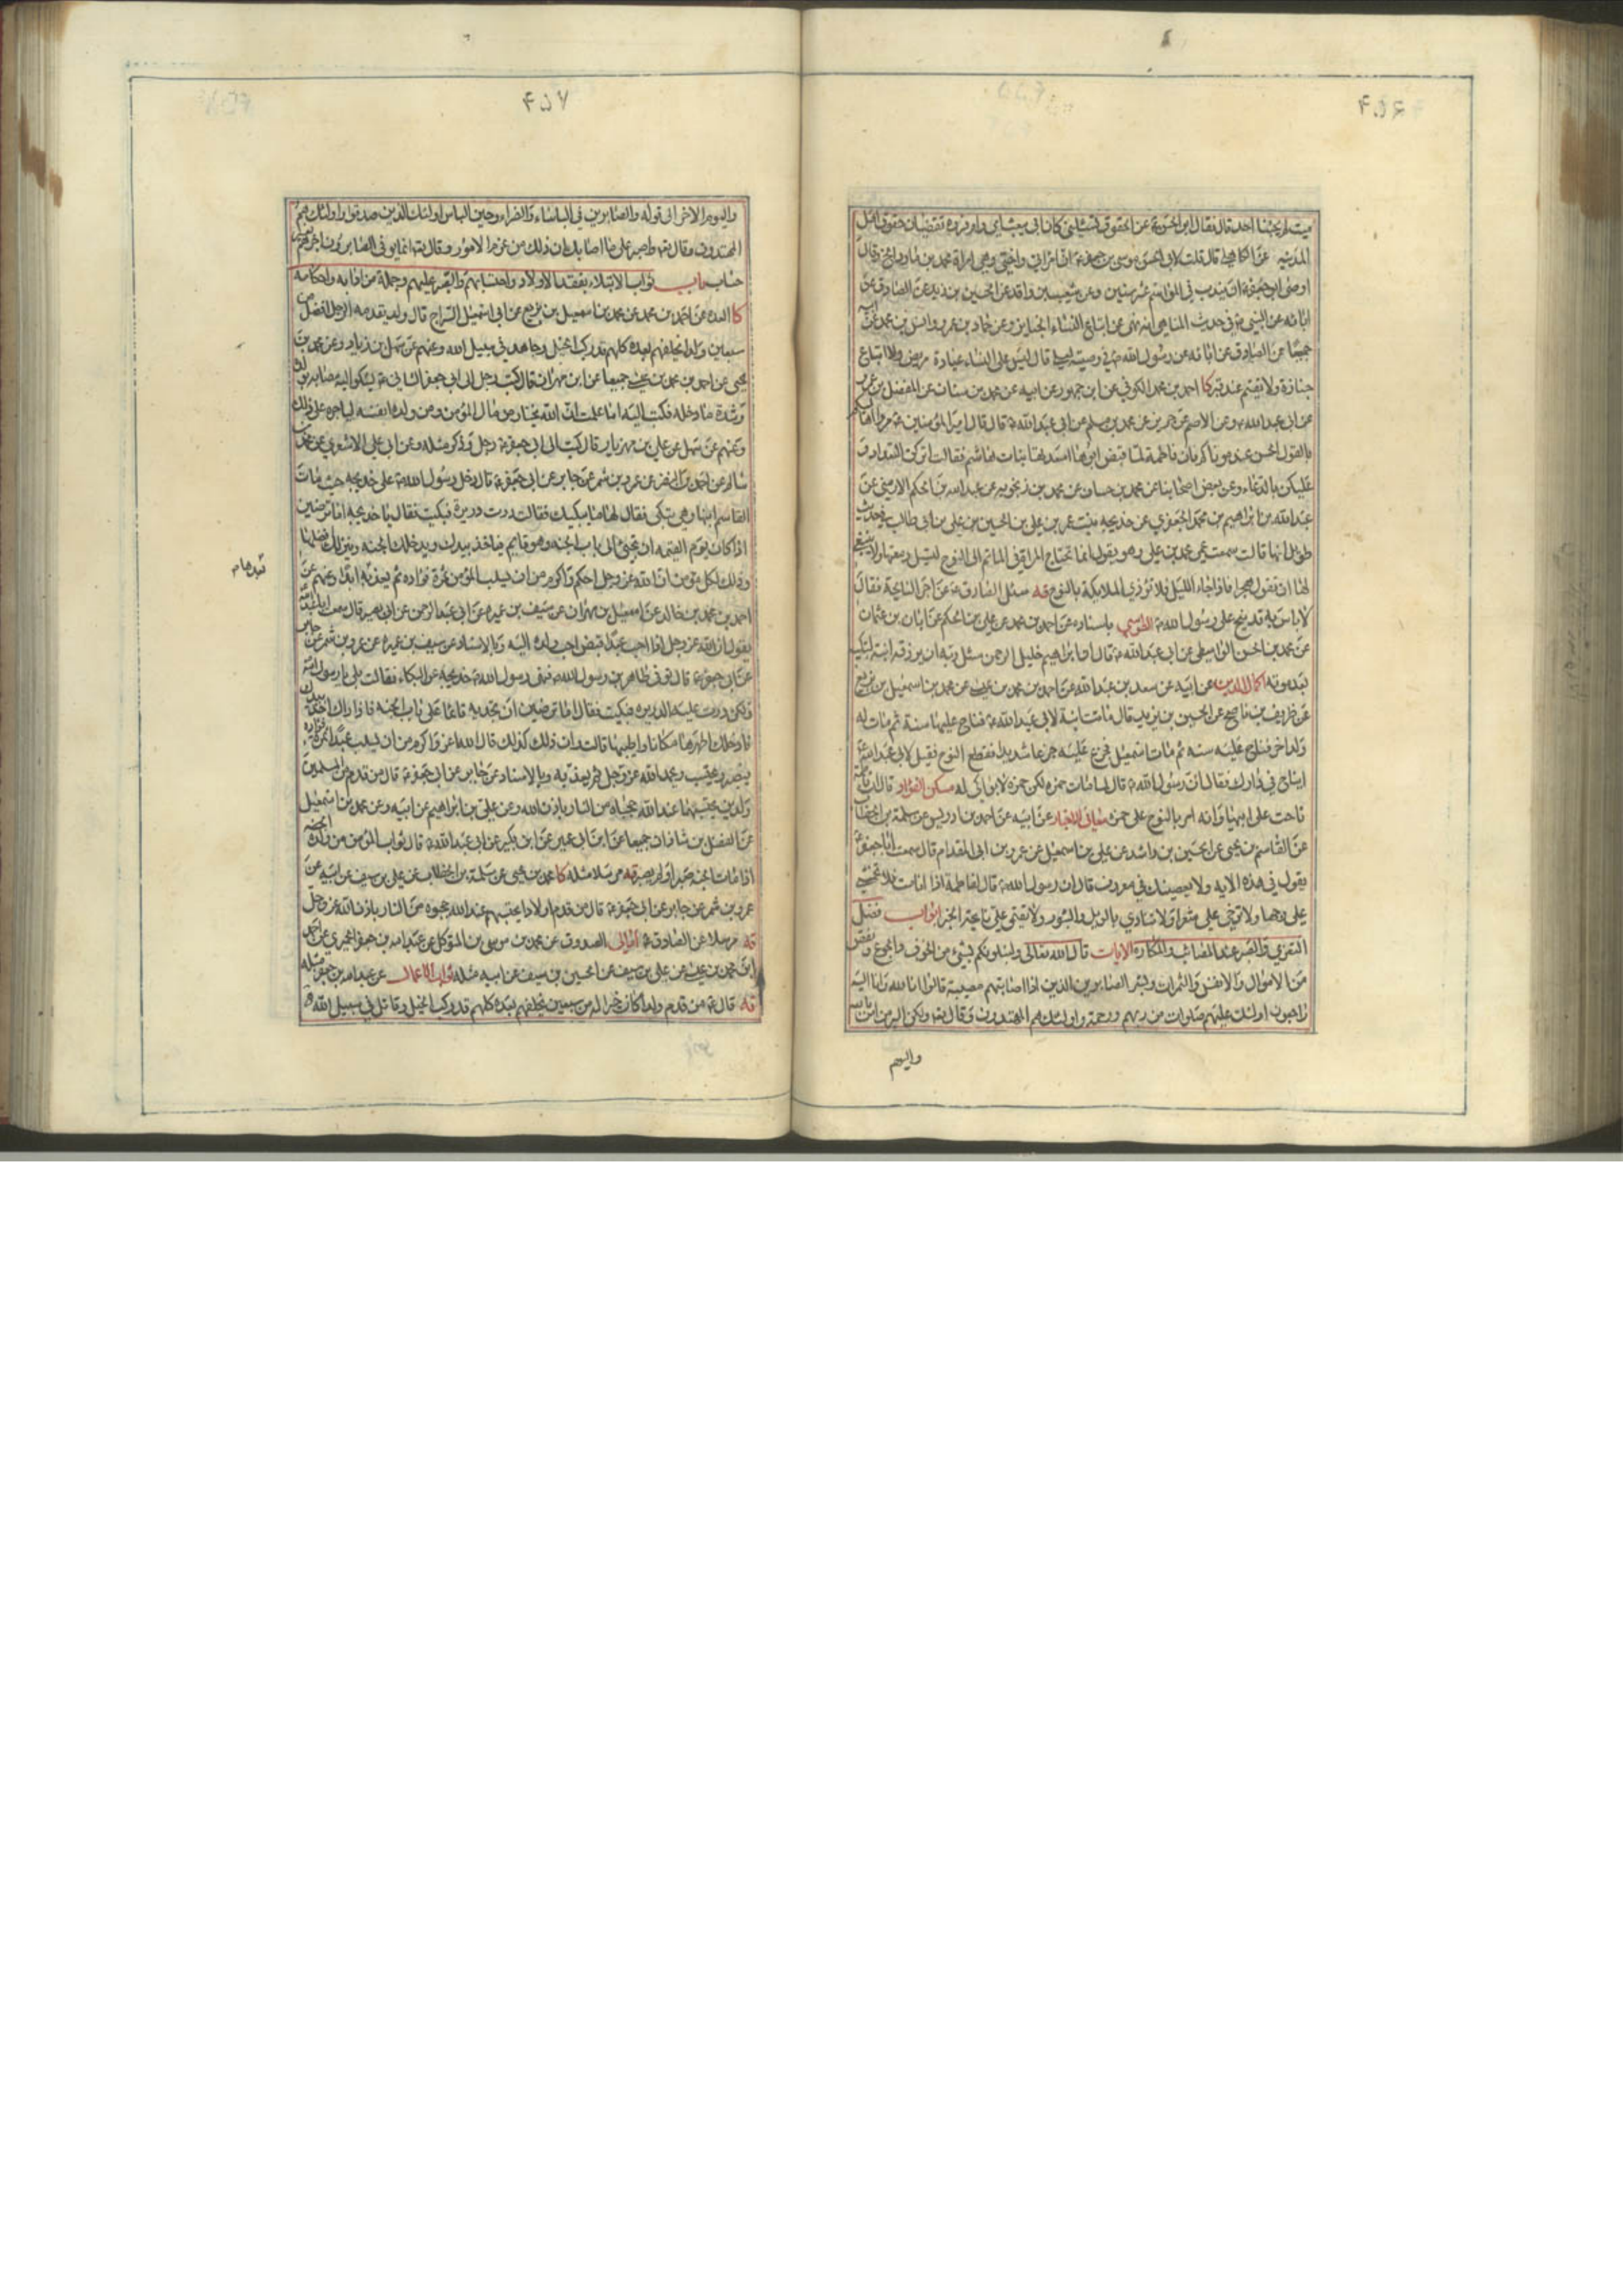 ۴۵۶
ميت لم يجئنا احد قال فقال ابو الحسن ع عن الحقوق تسئلني كان ابي يبعث امي وام فروه تقضيان حقوق اهل
المدينه عن الكاهلي قال قلت لابي الحسن موسى بن جعفر ع ان امراتي واختي وهي امراة محمد بن مارد
اوصى ابي جعفر ع ان يندب في المواسم عشر سنين وعن شعيب بن واقد عن الحسين بن زيد عن الصادق عن
ابائه عن النبي ص في حديث المناهي انه نهى عن اتباع النساء الجنايز وعن حماد بن عمرو وانس بن محمد عن ابيه
جميعا عن الصادق عن ابائه عن رسول الله ص في وصيته لعلي قال ليس على النساء عيادة مريض ولا اتباع
جنازة ولا تقيم عند قبر كا احمد بن محمد الكوفي عن ابن جمهور عن ابيه عن محمد بن سنان عن المفضل بن عمر
عن ابي عبد الله ع وعن الاصم عن حريز عن محمد بن مسلم عن ابي عبد الله ع قال قال امير المؤمنين ع مروا اهاليكم
بالقول الحسن عند موتاكم فان فاطمة لما قبض ابوها اسعدتها بنات هاشم فقالت اتركن التعداد و
عليكن بالدعاء وعن بعض اصحابنا عن محمد بن حسان عن محمد بن زنجويه عن عبد الله بن الحكم الارمني عن
عبد الله بن ابراهيم بن محمد الجعفري عن خديجه بنت عمر بن علي بن الحسين بن علي بن ابي طالب في حديث
طويل انها قالت سمعت عمي محمد بن علي وهو يقول انما تحتاج المراة في الماتم الى النوح لتسيل دمعتها ولا ينبغي
لها ان تقول هجرا فاذا جاء الليل فلا تؤذي الملايكة بالنوح قه سئل الصادق ع عن اجر النايحة فقال
لا باس به قد نيح على رسول الله ص الطوسي باسناده عن احمد بن محمد عن علي بن الحكم عن ابان بن عثمان
عن محمد بن الحسن الواسطي عن ابي عبد الله ع قال ان ابراهيم خليل الرحمن سئل ربه ان يرزقه ابنة تبكيه
بعد موته اكمال الدين عن ابيه عن سعد بن عبد الله عن احمد بن محمد بن عيسى عن محمد بن اسمعيل بن بزيع
عن ظريف بن ناصح عن الحسين بن يزيد قال ماتت ابنة لابي عبد الله ع فناح عليها سنة ثم مات له
ولد اخر فناح عليه سنه ثم مات اسمعيل فجزع عليه جزعا شديدا فقطع النوح فقيل لابي عبد الله ع
ايناح في دارك فقال ان رسول الله ص قال لما مات حمزه لكن حمزه لا بواكي له مسكن الفؤاد قال ان فاطمة
ناحت على ابيها وانه امر بالنوح على حمزه معاني الاخبار عن ابيه عن احمد بن ادريس عن سلمة بن الخطاب
عن القاسم بن يحيى عن الحسين بن راشد عن علي بن اسمعيل عن عمرو بن ابي المقدام قال سمعت ابا جعفر ع
يقول في هذه الايه ولا يعصينك في معروف قال ان رسول الله ص قال لفاطمة اذا انا مت فلا تخمشي
علي وجها ولا ترخي علي شعرا ولا تنادي بالويل والثبور ولا تقيمي علي نايحة الخبر ابواب فضل
التعزي والصبر عند المصائب والمكاره الايات قال الله تعالى ولنبلونكم بشيء من الخوف والجوع ونقص
من الاموال والانفس والثمرات وبشر الصابرين الذين اذا اصابتهم مصيبة قالوا انا لله وانا اليه
راجعون اولئك عليهم صلوات من ربهم ورحمة واولئك هم المهتدون وقال تع ولكن البر من امن بالله
واليوم
۴۵۷
واليوم الاخر الى قوله والصابرين في الباساء والضراء وحين الباس اولئك الذين صدقوا واولئك هم
المهتدون وقال تع واصبر على ما اصابك ان ذلك من عزم الامور وقال تع انما يوفى الصابرون اجرهم بغير
حساب باب ثواب الابتلاء بفقد الاولاد واحتسابهم والصبر عليهم وجملة من ادابه واحكامه
كا العده عن احمد بن محمد عن محمد بن اسمعيل بن بزيع عن ابي اسمعيل السراج قال ولد يقدمه الرجل افضل من
سبعين ولدا يخلفهم بعده كلهم قد ركب الخيل وجاهد في سبيل الله وعنهم عن سهل بن زياد وعن محمد بن
يحيى عن احمد بن محمد بن عيسى جميعا عن ابن مهران قال كتب رجل الى ابي جعفر الثاني ع يشكو اليه مصابه بولده
وشدة ما دخله فكتب اليه اما علمت ان الله يختار من مال المؤمن ومن ولده انفسه لياجره على ذلك
وعنهم عن سهل عن علي بن مهزيار قال كتب الى ابي جعفر ع رجل وذكر مثله وعن ابي علي الاشعري عن محمد بن
سالم عن احمد بن النضر عن عمرو بن شمر عن جابر عن ابي جعفر ع قال دخل رسول الله ص على خديجه حيث مات
القاسم ابنها وهي تبكي فقال لها ما يبكيك فقالت درت دريرة فبكيت فقال يا خديجه اما ترضين
اذا كان يوم القيمه ان تجيئ الى باب الجنه وهو قايم فياخذ بيدك ويدخلك الجنه وينزلك افضلها
وذلك لكل مؤمن ان الله عز وجل احكم واكرم من ان يسلب المؤمن ثمرة فؤاده ثم يعذبه ابدا وعنهم عن
احمد بن محمد بن خالد عن اسمعيل بن مهران عن سيف بن عميره عن ابي عبد الرحمن عن ابي بصير قال سمعت ابا عبد الله ع
يقول ان الله عز وجل اذا احب عبدا قبض احب ولده اليه وبالاسناد عن سيف بن عميره عن عمرو بن شمر عن جابر
عن ابي جعفر ع قال توفي طاهر بن رسول الله ص فنهى رسول الله ص خديجه عن البكاء فقالت بلى يا رسول الله
ولكن درت عليه الدريره فبكيت فقال اما ترضين ان تجديه قائما على باب الجنه فاذا راك اخذ بيدك
فادخلك اطهرها مكانا واطيبها قالت وان ذلك كذلك قال الله اعز واكرم من ان يسلب عبدا ثمرة فؤاده
فيصبر ويحتسب ويحمد الله عز وجل ثم يعذبه وبالاسناد عن جابر عن ابي جعفر ع قال من قدم من المسلمين
ولدين يحتسبهما عند الله حجباه من النار باذن الله وعن علي بن ابراهيم عن ابيه وعن محمد بن اسمعيل
عن الفضل بن شاذان جميعا عن ابن ابي عمير عن ابن بكير عن ابي عبد الله ع قال ثواب المؤمن من ولده
اذا مات الجنه صبر او لم يصبر قه مرسلا مثله كا محمد بن يحيى عن سلمة بن الخطاب عن علي بن سيف عن ابيه عن
عمرو بن شمر عن جابر عن ابي جعفر ع قال من قدم اولادا يحتسبهم عند الله حجبوه من النار باذن الله عز وجل
قه مرسلا عن الصادق ع امالي الصدوق عن محمد بن موسى بن المتوكل عن عبد الله بن جعفر الحميري عن احمد
ابن محمد بن عيسى عن علي بن سيف عن الحسين بن سيف عن ابيه مثله ثواب الاعمال عن عبد الله بن جعفر مثله
قه قال ع من قدم ولدا كان خيرا له من سبعين يخلفهم بعده كلهم قد ركب الخيل وقاتل في سبيل الله